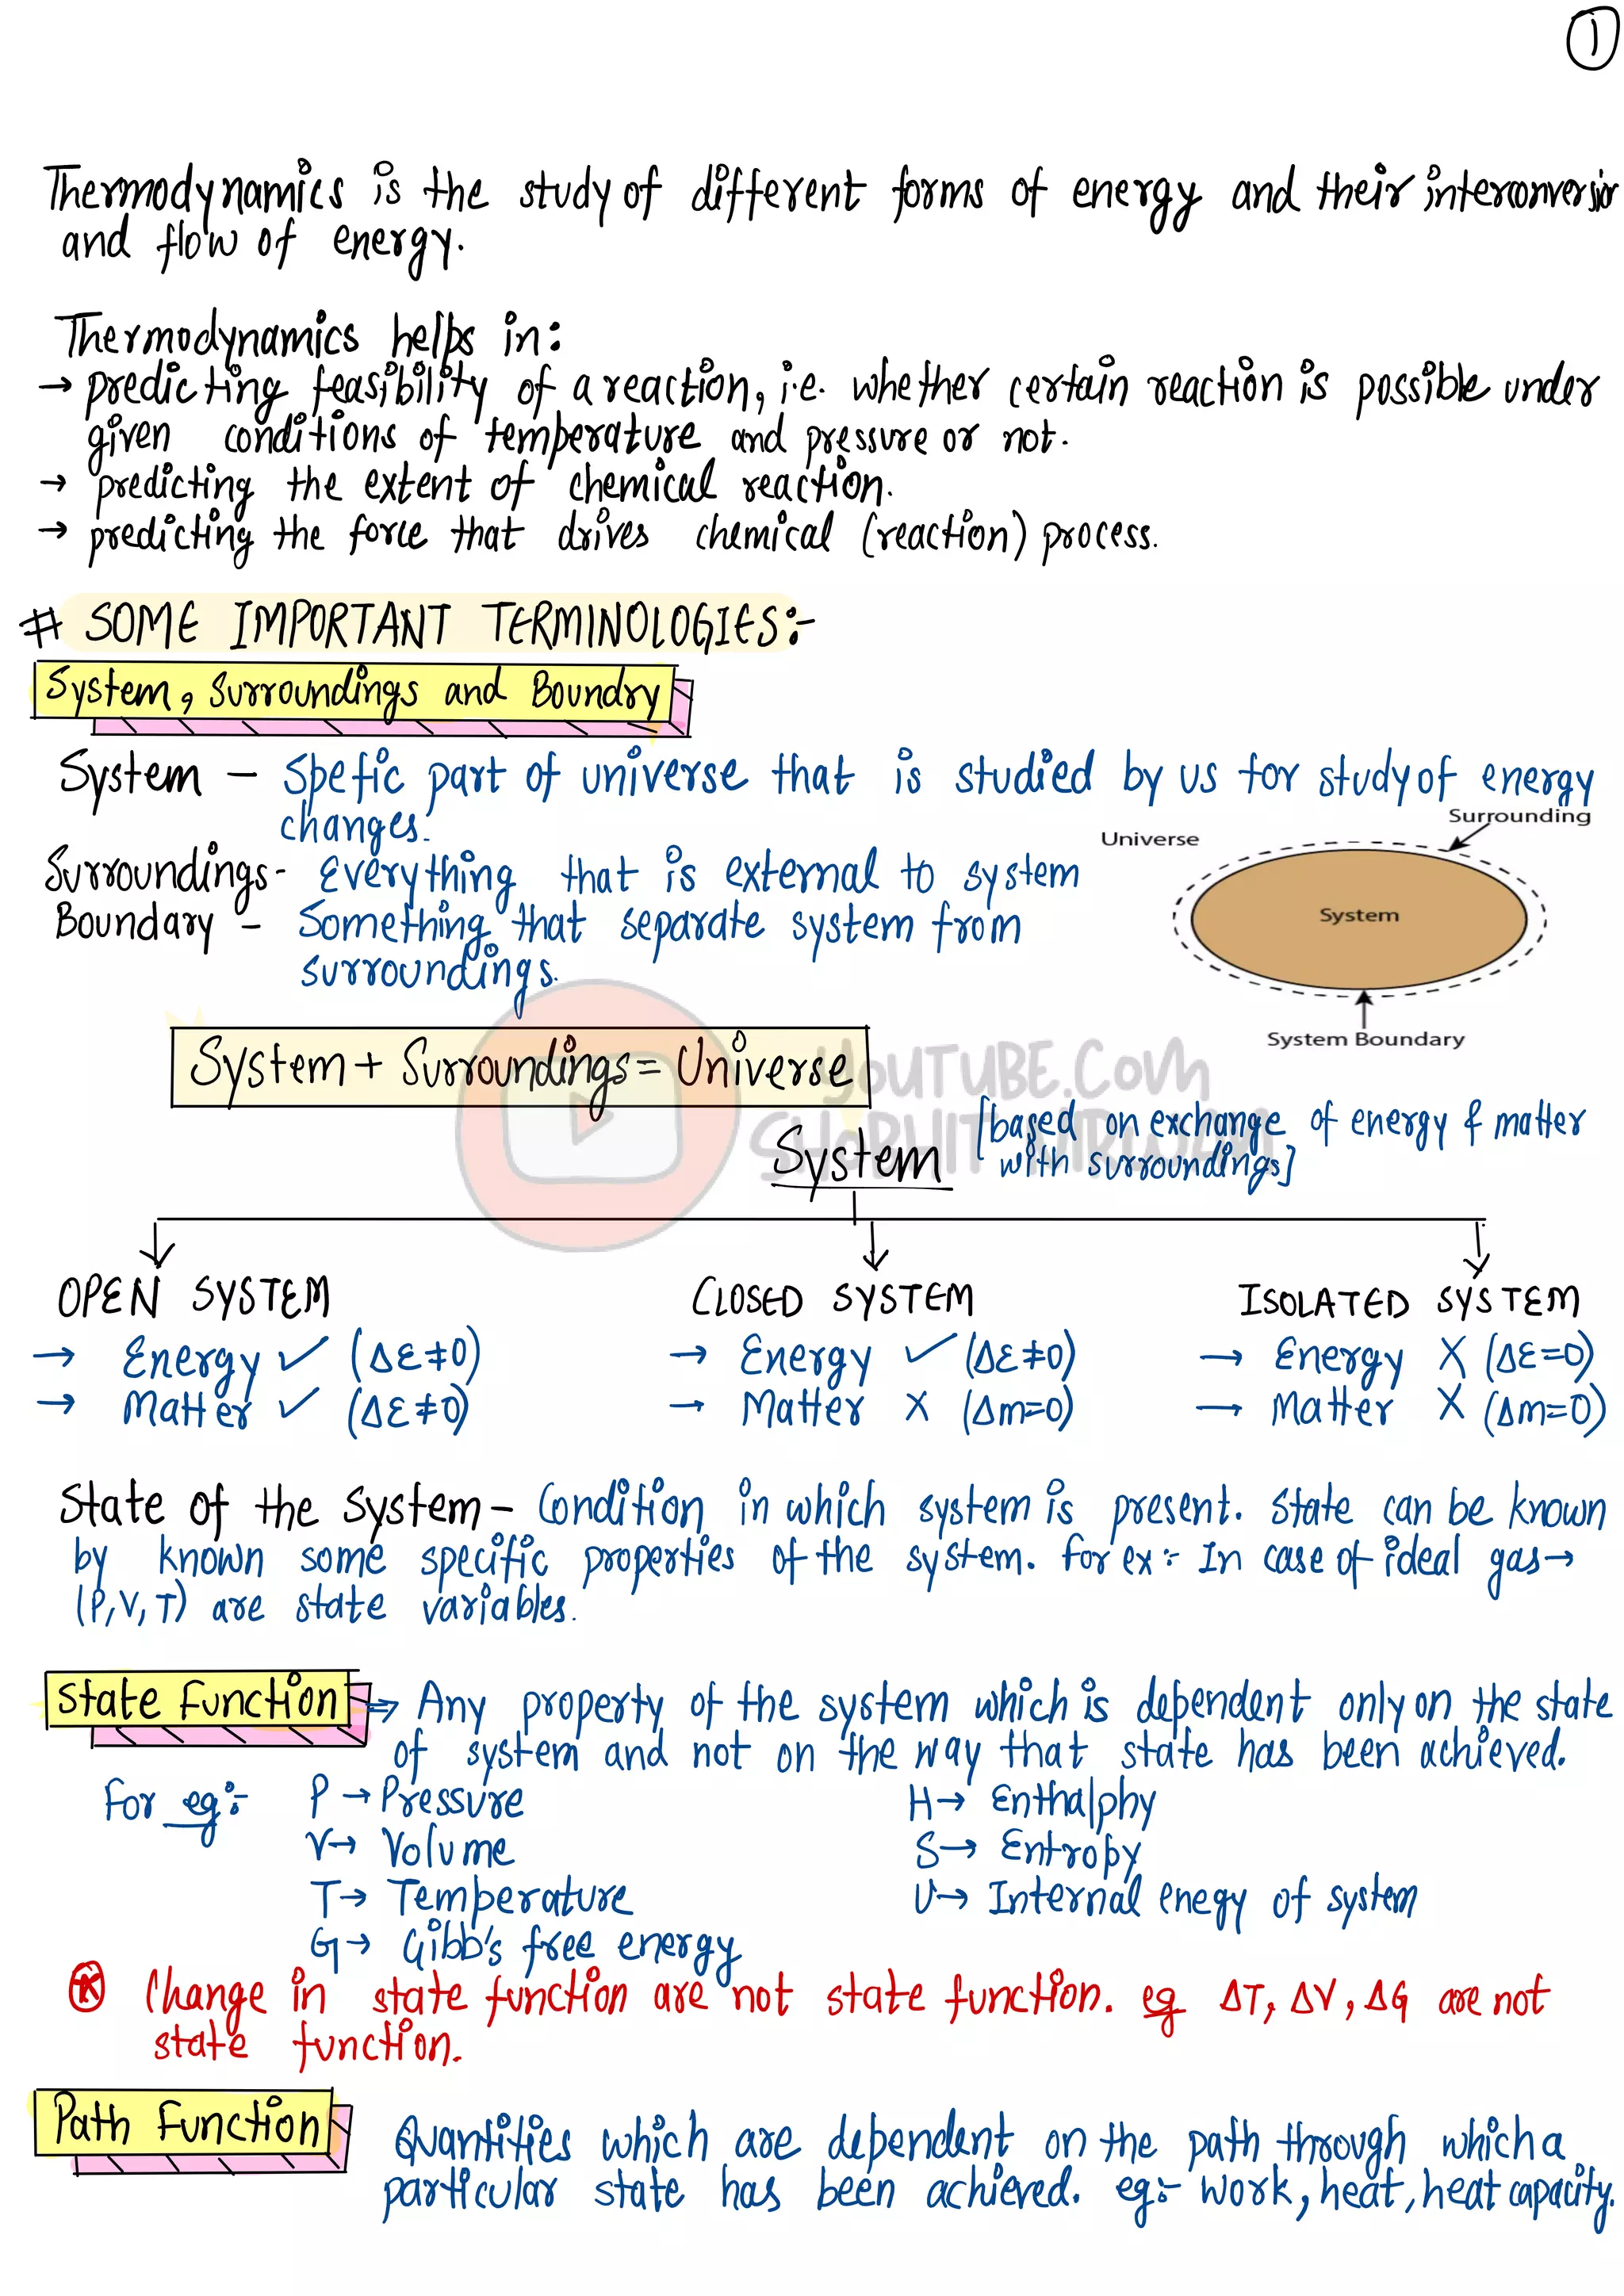 1
Thermodynamics is the study of different forms of energy and their interconversion
and flow of energy.
Thermodynamics helps in:
→ predicting feasibility of a reaction, i.e. whether certain reaction is possible under
given conditions of temperature and pressure or not.
→ predicting the extent of chemical reaction.
→ predicting the force that drives chemical (reaction) process.
# SOME IMPORTANT TERMINOLOGIES:-
System, Surroundings and Boundry
System - Spefic part of universe that is studied by us for study of energy
changes.
Surroundings - Everything that is external to system
Boundary - Something that separate system from
surroundings.
Surrounding
Universe
System
System Boundary
System + Surroundings = Universe
YOUTUBE.COM
SHOBHIT NIRWAN
System [based on exchange of energy & matter
with surroundings]
OPEN SYSTEM CLOSED SYSTEM ISOLATED SYSTEM
→ Energy ✓ (ΔE≠0) → Energy ✓ (ΔE≠0) → Energy X (ΔE=0)
→ Matter ✓ (ΔE≠0) → Matter X (Δm=0) → Matter X (Δm=0)
State of the system - Condition in which system is present. State can be known
by known some specific properties of the system. For ex:- In case of ideal gas →
(P,V,T) are state variables.
State Function ⇒ Any property of the system which is dependent only on the state
of system and not on the way that state has been achieved.
For eg:- P → Pressure H → Enthalphy
V → Volume S → Entropy
T → Temperature U → Internal enegy of system
G → Gibb's free energy
* Change in state function are not state function. eg ΔT, ΔV, ΔG are not
state function.
Path Function Quantities which are dependent on the path through which a
particular state has been achieved. eg:- work, heat, heat capacity.